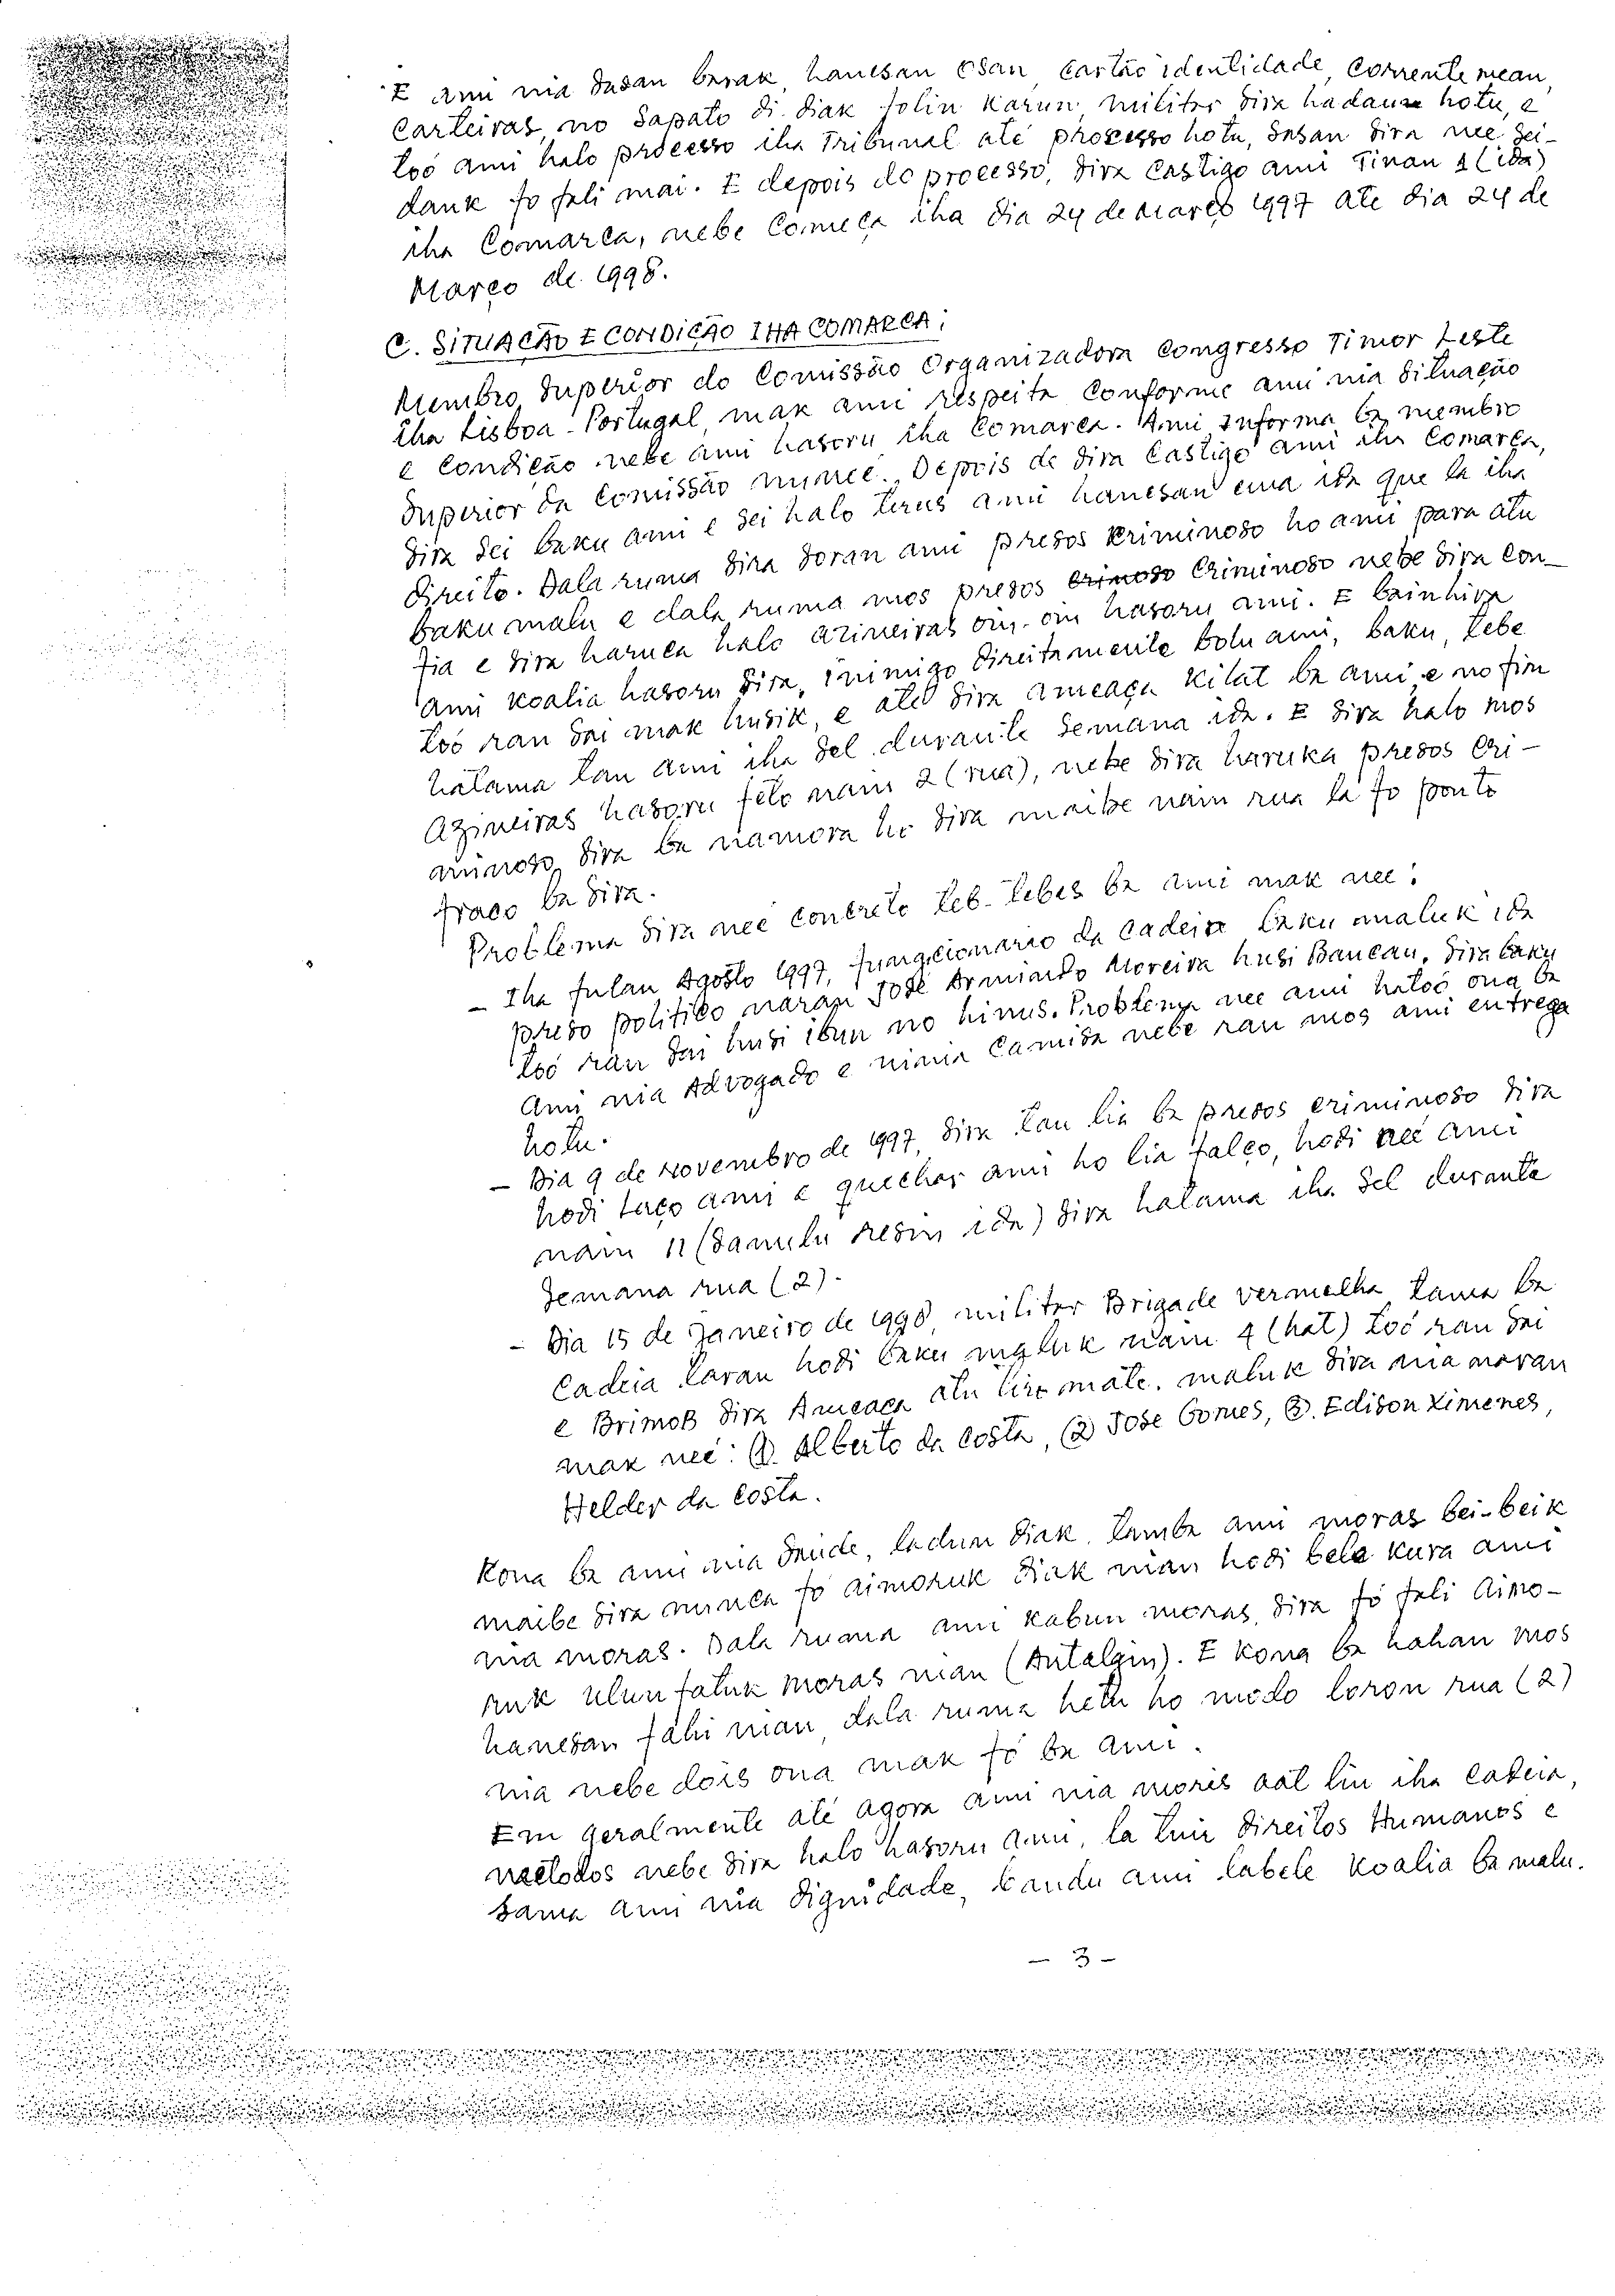 E ami nia sasan barak, hanesan osan, cartão identidade, corrente mean,
carteiras, no sapato di-diak folin karun, militar sira hadau hotu, e
toó ami halo processo iha Tribunal até processo hotu, sasan sira nee sei-
dauk fo fali mai. E depois do processo, sira castigo ami Tinan 1 (ida)
iha Comarca, nebe Começa iha dia 24 de Março 1997 ate dia 24 de
Março de 1998.
C. SITUAÇÃO E CONDIÇÃO IHA COMARCA:
Membro Superior do Comissão Organizadora Congresso Timor Leste
iha Lisboa-Portugal, mak ami respeita conforme ami nia situação
e condição nebe ami hasoru iha Comarca. Ami informa ba membro
Superior da Comissão nuneé. Depois de sira castigo ami iha Comarca,
sira sei baku ami e sei halo terus ami hanesan ema ida que la iha
direito. Dala ruma sira soran ami presos kriminoso ho ami para atu
baku malu e dala ruma mos presos crimoso criminoso nebe sira con-
fia e sira haruca halo azineiras oin-oin hasoru ami. E bainhira
ami koalia hasoru sira, inimigo direitamente bolu ami, baku, tebe
toó ran sai mak husik, e até sira ameaça kilat ba ami e no fim
hatama tan ami iha sel durante semana ida. E sira halo mos
azineiras hasoru feto nain 2 (rua), nebe sira haruka presos cri-
minoso sira ba namora ho sira maibe nain rua la fo ponto
fraco ba sira.
Problema sira neé concreto teb-tebes ba ami mak nee:
- Iha fulan Agosto 1997, fungcionario da cadeia baku maluk ida
preso politico naran José Armindo Moreira husi Baucau. Sira baku
toó ran sai husi ibun no hinus. Problema nee ami hatoó ona ba
ami nia Advogado e ninia camisa nebe ran mos ami entrega
hotu.
- Dia 9 de Novembro de 1997, sira tau lia ba presos criminoso sira
hodi laço ami e quechar ami ho lia falço, hodi neé ami
nain 11 (sanulu resin ida) sira hatama iha sel durante
semana rua (2).
- Dia 15 de Janeiro de 1998, militar Brigade vermelha tama ba
cadeia laran hodi baku maluk nain 4 (hat) toó ran sai
e Brimob sira Ameaça atu tiro mate. maluk sira nia naran
mak neé: (1). Alberto da Costa, (2) Jose Gomes, (3). Edison Ximenes,
Helder da Costa.
Kona ba ami nia saude, ladun diak. Tamba ami moras bei-beik
maibe sira nunca fó aimoruk diak nian hodi bele kura ami
nia moras. Dala ruma ami kabun moras, sira fó fali aimo-
ruk ulun fatuk moras nian (Antalgin). E kona ba hahan mos
hanesan fahi nian, dala ruma hetu ho modo loron rua (2)
nia nebe dois ona mak fó ba ami.
Em geralmente até agora ami nia moris aat liu iha cadeia,
naclodos nebe sira halo hasoru ami, la tuir direitos Humanos e
sama ami nia dignidade, bandu ami labele koalia ba malu.
- 3 -